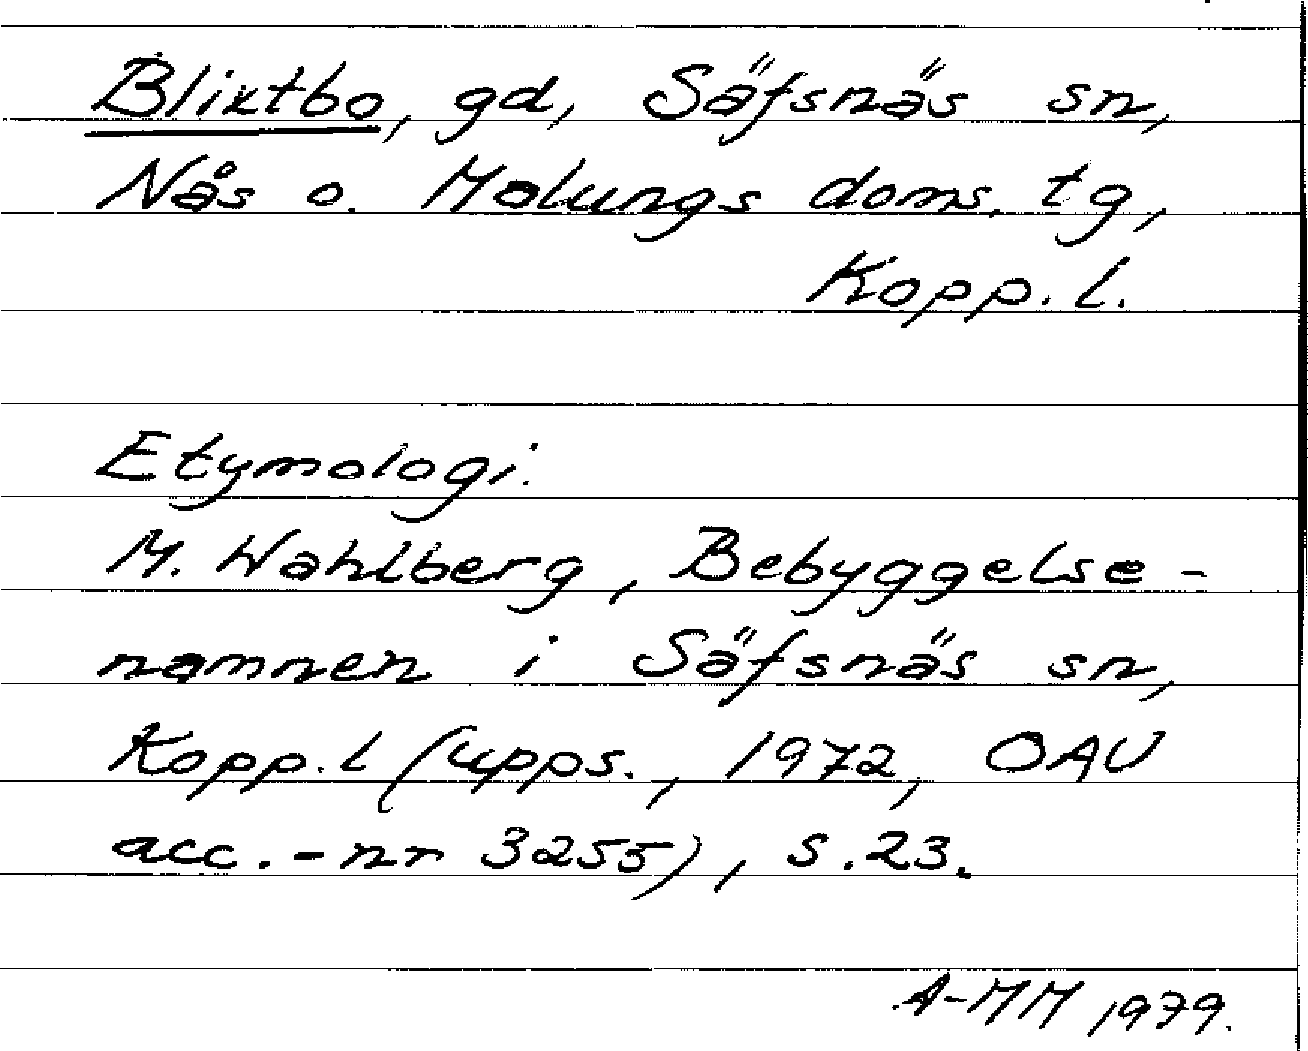 Bliktbo, gd, Säfsnäs sn,
Nås o. Malungs doms. tg,
Kopp. l.
Etymologi.
M. Wahlberg, Bebyggelse-
namnen i Säfsnäs sn,
Kopp. l (upps., 1972, OAU
acc.-nr 3255), s. 23.
A-MM 1979.